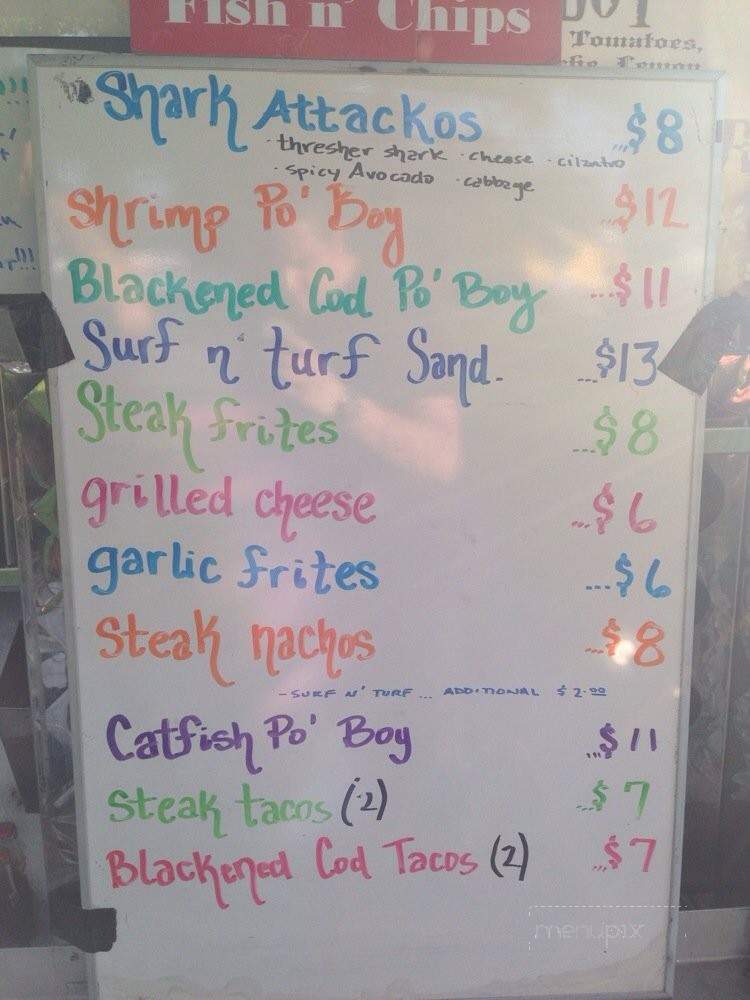 Fish n' Chips
Tomatoes,
Lemon
Shark Attackos ...$8
·thresher shark ·cheese ·cilantro
·spicy Avocado ·cabbage
Shrimp Po' Boy ...$12
Blackened Cod Po' Boy ...$11
Surf n' turf Sand. ...$13
Steak frites ...$8
grilled cheese ...$6
garlic frites ...$6
Steak nachos ...$8
-SURF N' TURF ... ADDITIONAL $2.00
Catfish Po' Boy ...$11
Steak tacos (2) ...$7
Blackened Cod Tacos (2) ...$7
menupix